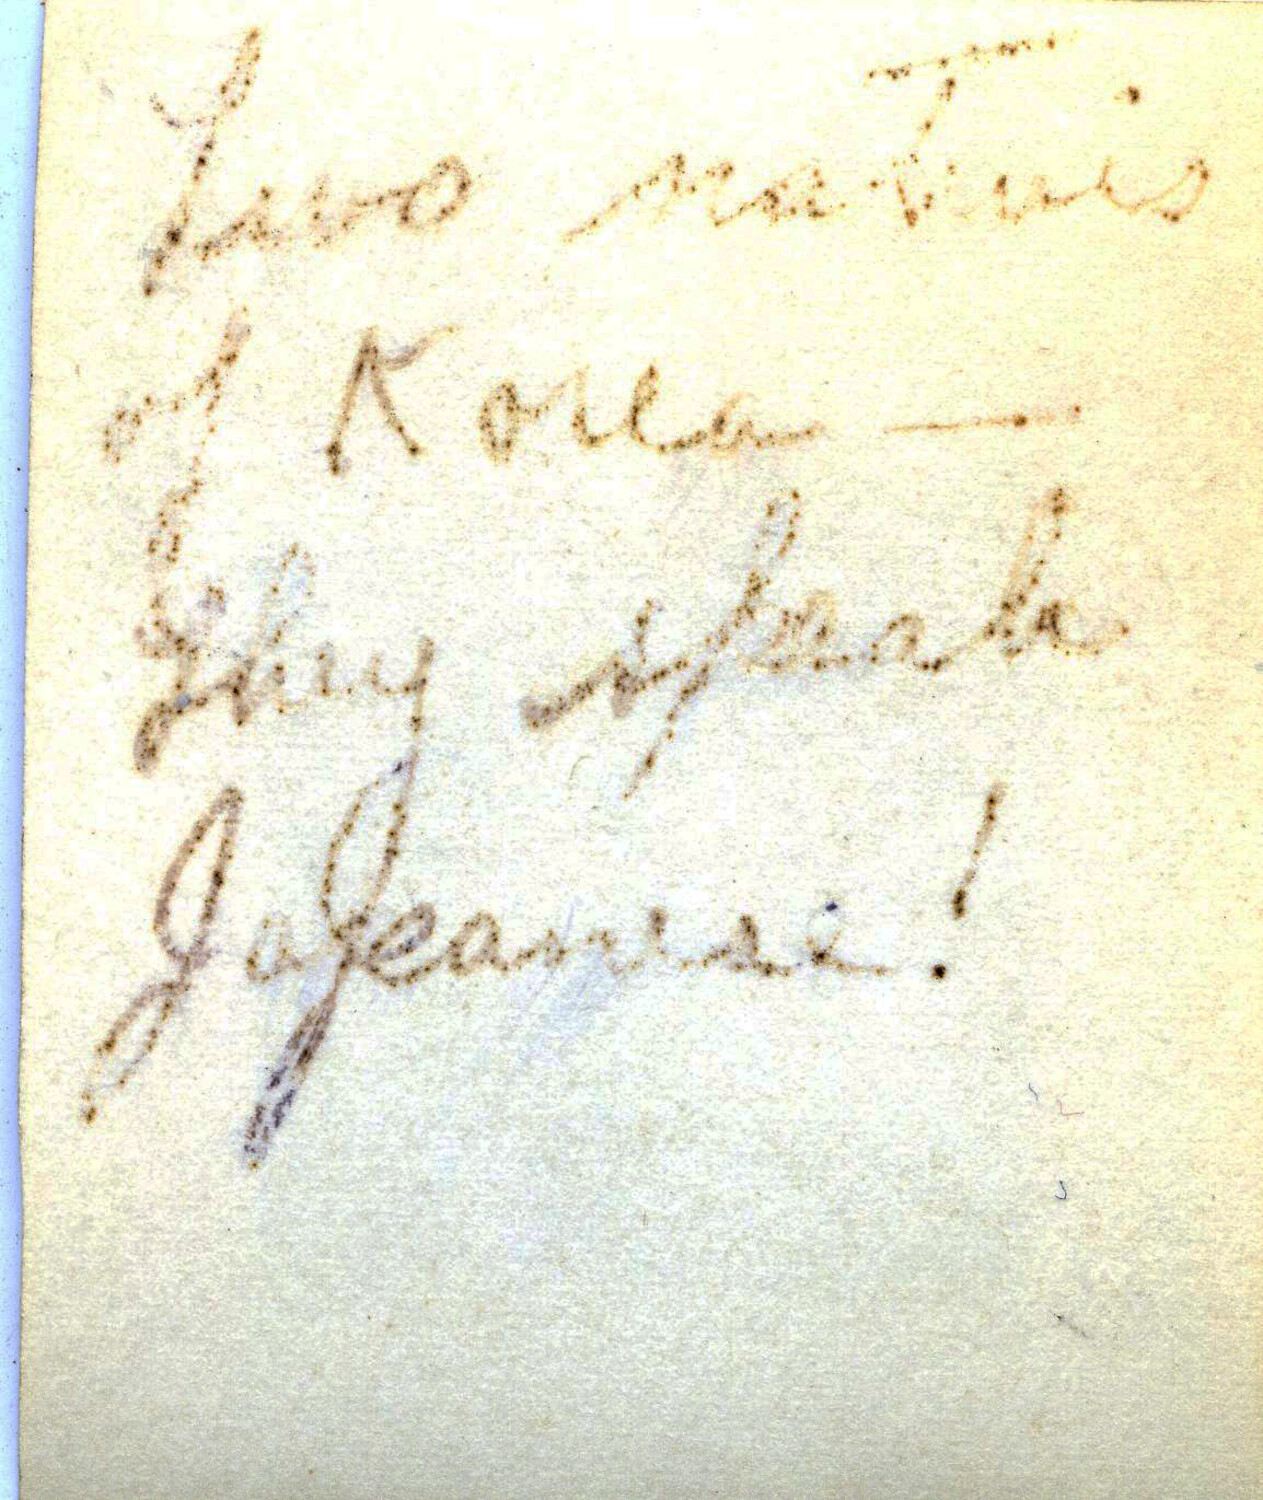 Two natives
of Korea —
They speak
Japanese!